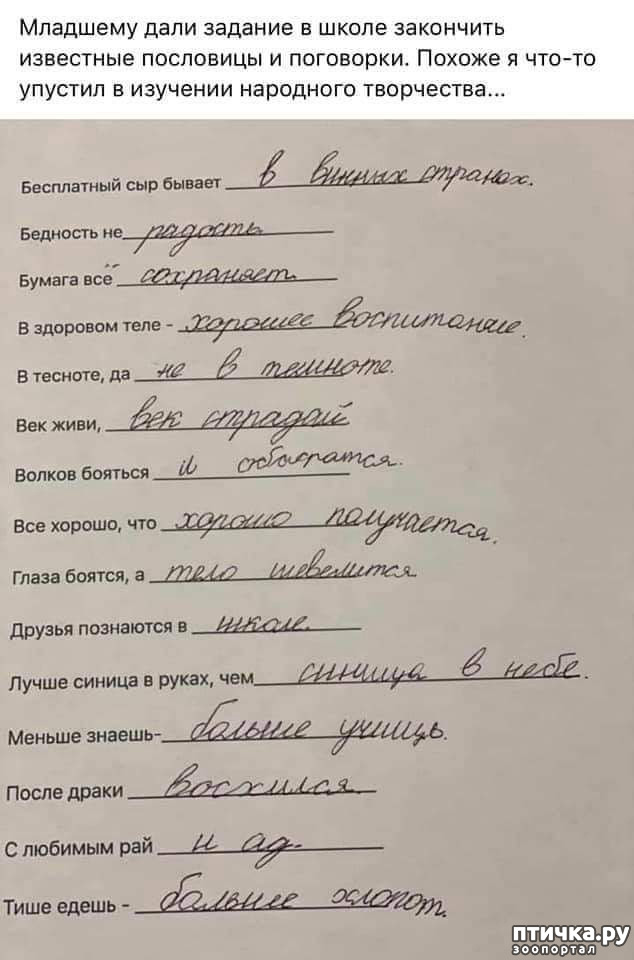 Младшему дали задание в школе закончить
известные пословицы и поговорки. Похоже я что-то
упустил в изучении народного творчества...
Бесплатный сыр бывает в винных странах.
Бедность не радость
Бумага всё сохраняет
В здоровом теле - хорошее воспитание.
В тесноте, да не в темноте.
Век живи, век страдай
Волков бояться и
Все хорошо, что хорошо получается.
Глаза боятся, а тело шевелится
Друзья познаются в школе.
Лучше синица в руках, чем синица в небе.
Меньше знаешь- больше учишь.
После драки
С любимым рай и ад.
Тише едешь - больше хлопот.
птичка.ру
зоопортал